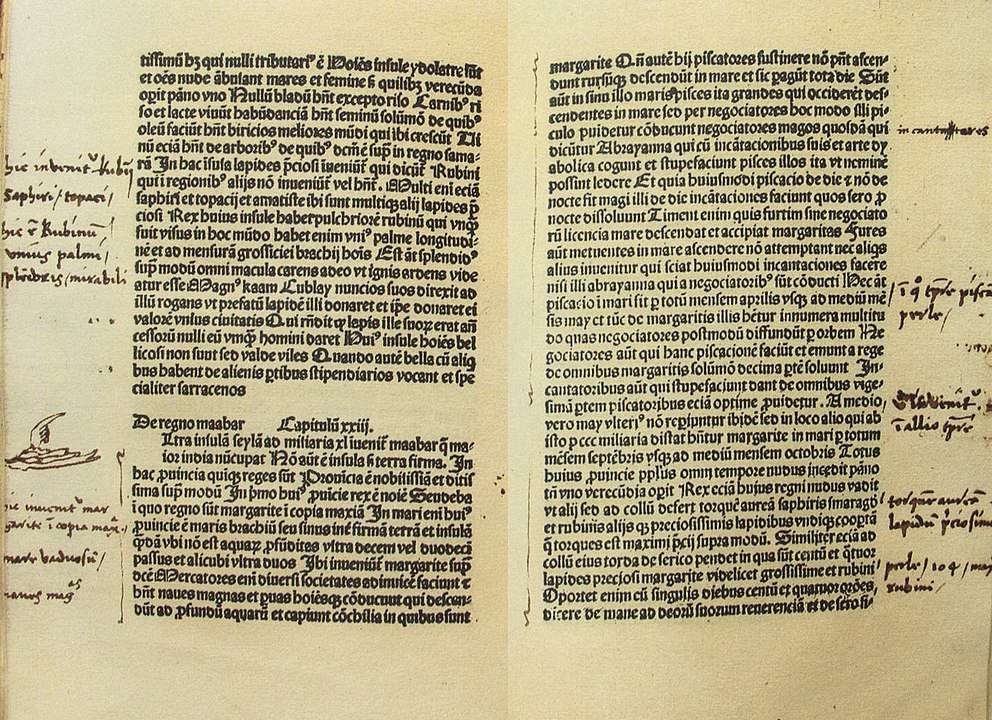 tissimū bʒ qui nulli tributariꝰ ē Ⅰoīes insule ydolatre sūt
et oēs nude ābulant mares et femine ꝭ quilibꝫ verecūda
opit pāno vno Nullū bladū hn̄t excepto riso Carnibꝰ ri
so et lacte viuūt habūdanciā hn̄t seminū solūmō de quibꝰ
oleū faciūt hn̄t biricios meliores mūdi qui ibi crescūt Ui
nū eciā hn̄t de arboribꝰ de quibꝰ dcm̄ ē sup̄ in regno sama⸗
rā In hac īsula lapides p̄ciosi īueniūt qui dicūt Rubini
qui ī regionibꝰ alijs nō inueniūt vel hn̄t. Multi eni eciā
saphiri et topacij et amatiste ibi sunt multiqꝫ alij lapides p̄
ciosi Rex huius insule habet pulchriorē rubinū qui vnqꝫ
fuit visus in hoc mūdo habet enim vniꝰ palme longitudi⸗
nē et ad mensurā grossiciei brachij hoīs Est āt splendidꝰ
sup̄ modū omni macula carens adeo vt ignis ardens vide
atur esse Magnꝰ kaam Cublay nuncios suos direxit ad
illū rogans vt prefatū lapidē illi donaret et ip̄e donaret ei
valorē vnius ciuitatis Qui rn̄dit qꝫ lapis ille suoꝝ erat ān
cessorū nulli eū vnqꝫ homini daret Huiꝰ insule hoīes bel
licosi non sunt sed valde viles Quando autē bella cū aliqꝫ
bus habent de alienis ꝑtibus stipendiarios vocant et spe
cialiter sarracenos
De regno maabar Capitulū xxiij.
Ultra insulā seylā ad miliaria xl īuenit̄ maabar q̄ ma⸗
ior india nūcupat Nō aūt ē insula ꝭ terra firma. In
hac ꝓuincia quiqꝫ reges sūt Prouīcia ē nobilissīa et ditis
sima sup̄ modū In p̄mo huiꝰ ꝓuīcie rex ē noīe Seudeba
i quo regno sūt margarite ī copia maxīa In mari eni huiꝰ
ꝓuincie ē maris brachiū seu sinus inē firmā terrā et insulā
q̄dā vbi nō est aquaꝝ ꝓfūditas vltra decem vel duodecī
passus et alicubi vltra duos Ibi inueniūt margarite sup̄
dc̄e Mercatores eni diuersi societates adinuicē faciunt ⁊
hn̄t naues magnas et ꝑuas hoīesqꝫ cōducunt qui descen⸗
dūt ad ꝓfundū aquarū et capiunt cōchilia in quibus sunt
hic invenit̄ Rubinj
Saphiri / topacij /
hic ē Rubinū
vnius palmi /
splēdoris / mirabili
margarite ī copia maxᵃ
mare vadosū /
naues magᵃˢ
margarite Qn̄ autē hij piscatores sustinere nō pn̄t ascen⸗
dunt rursūqꝫ descendūt in mare et sic ꝑagūt tota die Sūt
aūt in sinu illo maris pisces ita grandes qui occiderēt des⸗
cendentes in mare sed per negociatores hoc modo illi pi⸗
culo ꝓuidetur cōducunt negociatores magos quosdā qui
dicūtur Abrayanna qui cū incātacionibus suis et arte dy
abolica cogunt et stupefaciunt pisces illos ita vt neminē
possint ledere Et quia huiusmodi piscacio de die ⁊ nō de
nocte fit magi illi de die incātaciones faciunt quos sero ꝓ
nocte dissoluunt Timent enim quis furtim sine negociato
rū licencia mare descendat et accipiat margaritas Fures
aūt metuentes in mare ascendere nō attemptant nec aliqꝫ
alius inuenitur qui sciat huiusmodi incantaciones facere
nisi illi abrayanna qui a negociatoribꝰ sūt cōducti Hec āt
piscacio ī mari fit ꝑ totū mensem aprilis vsqꝫ ad mediū mē
sis may et tūc de margaritis illis hētur innumera multitu
do quas negociatores postmodū diffundūt ꝑ orbem Ne
gociatores aūt qui hanc piscacionē faciūt et emunt a rege
de omnibus margaritis solūmō decima ꝑtē soluunt In⸗
cantatoribus aūt qui stupefaciunt dant de omnibus vige⸗
simā ꝑtem piscatoribus eciā optime ꝓuidetur. A medio
vero may vlteriꝰ nō rep̄iuntur ibidē sed in loco alio qui ab
isto ꝑ ccc miliaria distat hn̄tur margarite in mari ꝑ totum
mēsem septēbris vsqꝫ ad mediū mensem octobris Totus
huius ꝓuincie ppl̄us omni tempore nudus incedit pāno
tn̄ vno verecūdia opit Rex eciā huius regni nudus vadit
vt alij sed ad collū desert torquē aureā saphiris smaragdꝭ
et rubinis alijs qꝫ preciosissimis lapidibus vndiqꝫ coopertā
q̄ torques est maximi p̄cij supra modū. Similiter eciā ad
collū eius torda de serico pendet in qua sūt centū et q̄tuor
lapides preciosi margarite videlicet grossissime et rubini
Oportet enim cū singulis diebus centū et quatuor orōes
dicere de mane ad deorū suorum reuerenciā et de sero si⸗
incantatores
ī q̄ tp̄re piscā
perle /
ī allio tp̄re
torquē aureā
lapidū p̄ciosiss
perle / 104 / marg
rubini /